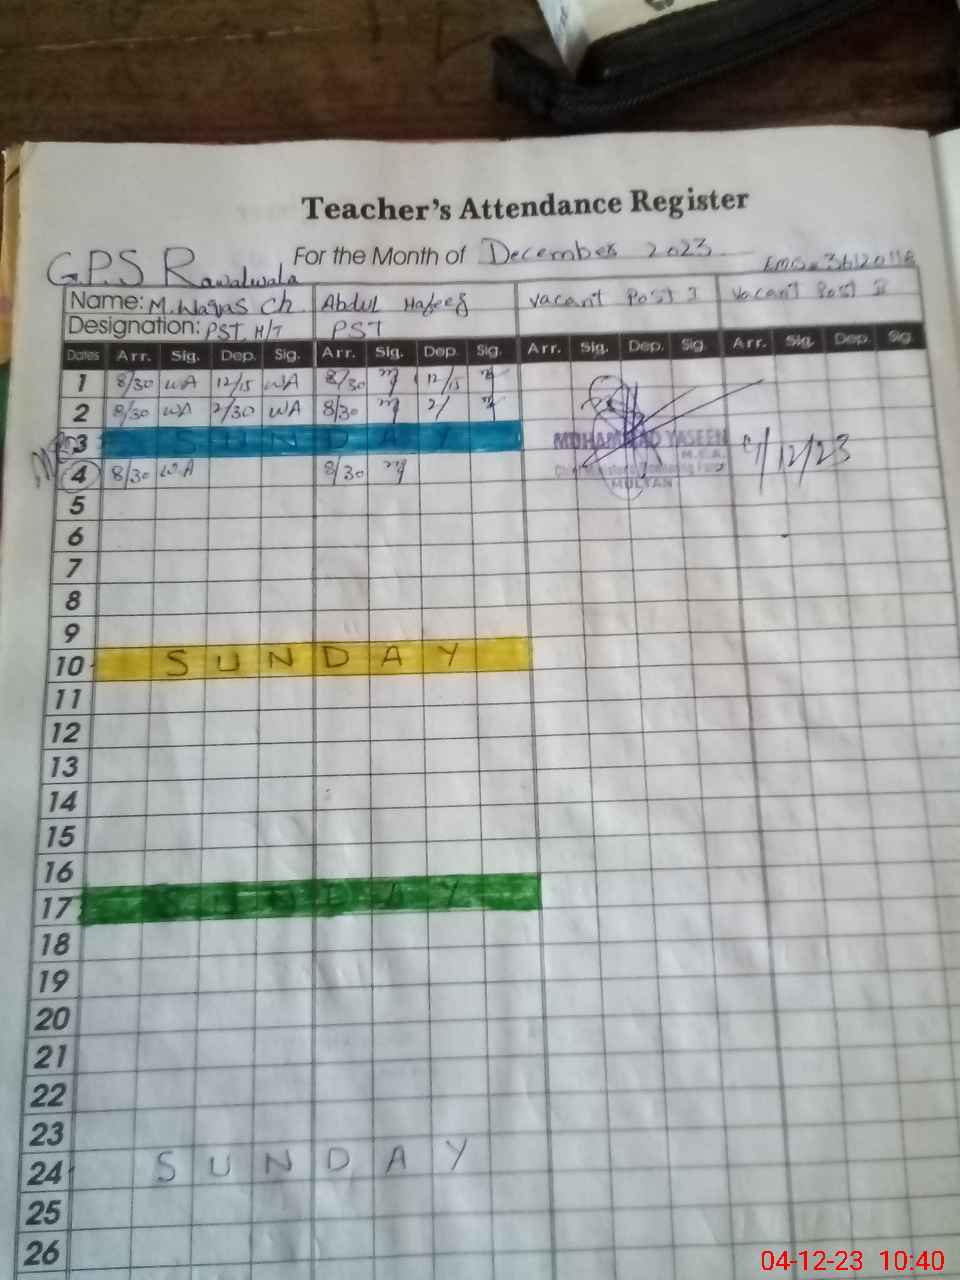 Teacher's Attendance Register
For the Month of December 2023
G.P.S Rawalwala
Name: M. Waqas Ch. Abdul Hafeez Vacant Post I Vacant Post II
Designation: PST. H/T PST
Dates Arr. Sig. Dep. Sig. Arr. Sig. Dep. Sig. Arr. Sig. Dep. Sig. Arr. Sig. Dep. Sig.
1 8/30 WA 12/15 WA 8/30 12/15
2 8/30 WA 2/30 WA 8/30 2/
3 SUNDAY
MUHAMMAD YASEEN
M.E.A.
MULTAN
4/12/23
4 8/30 WA 8/30
5
6
7
8
9
10 SUNDAY
11
12
13
14
15
16
17 SUNDAY
18
19
20
21
22
23
24 SUNDAY
25
26
04-12-23 10:40